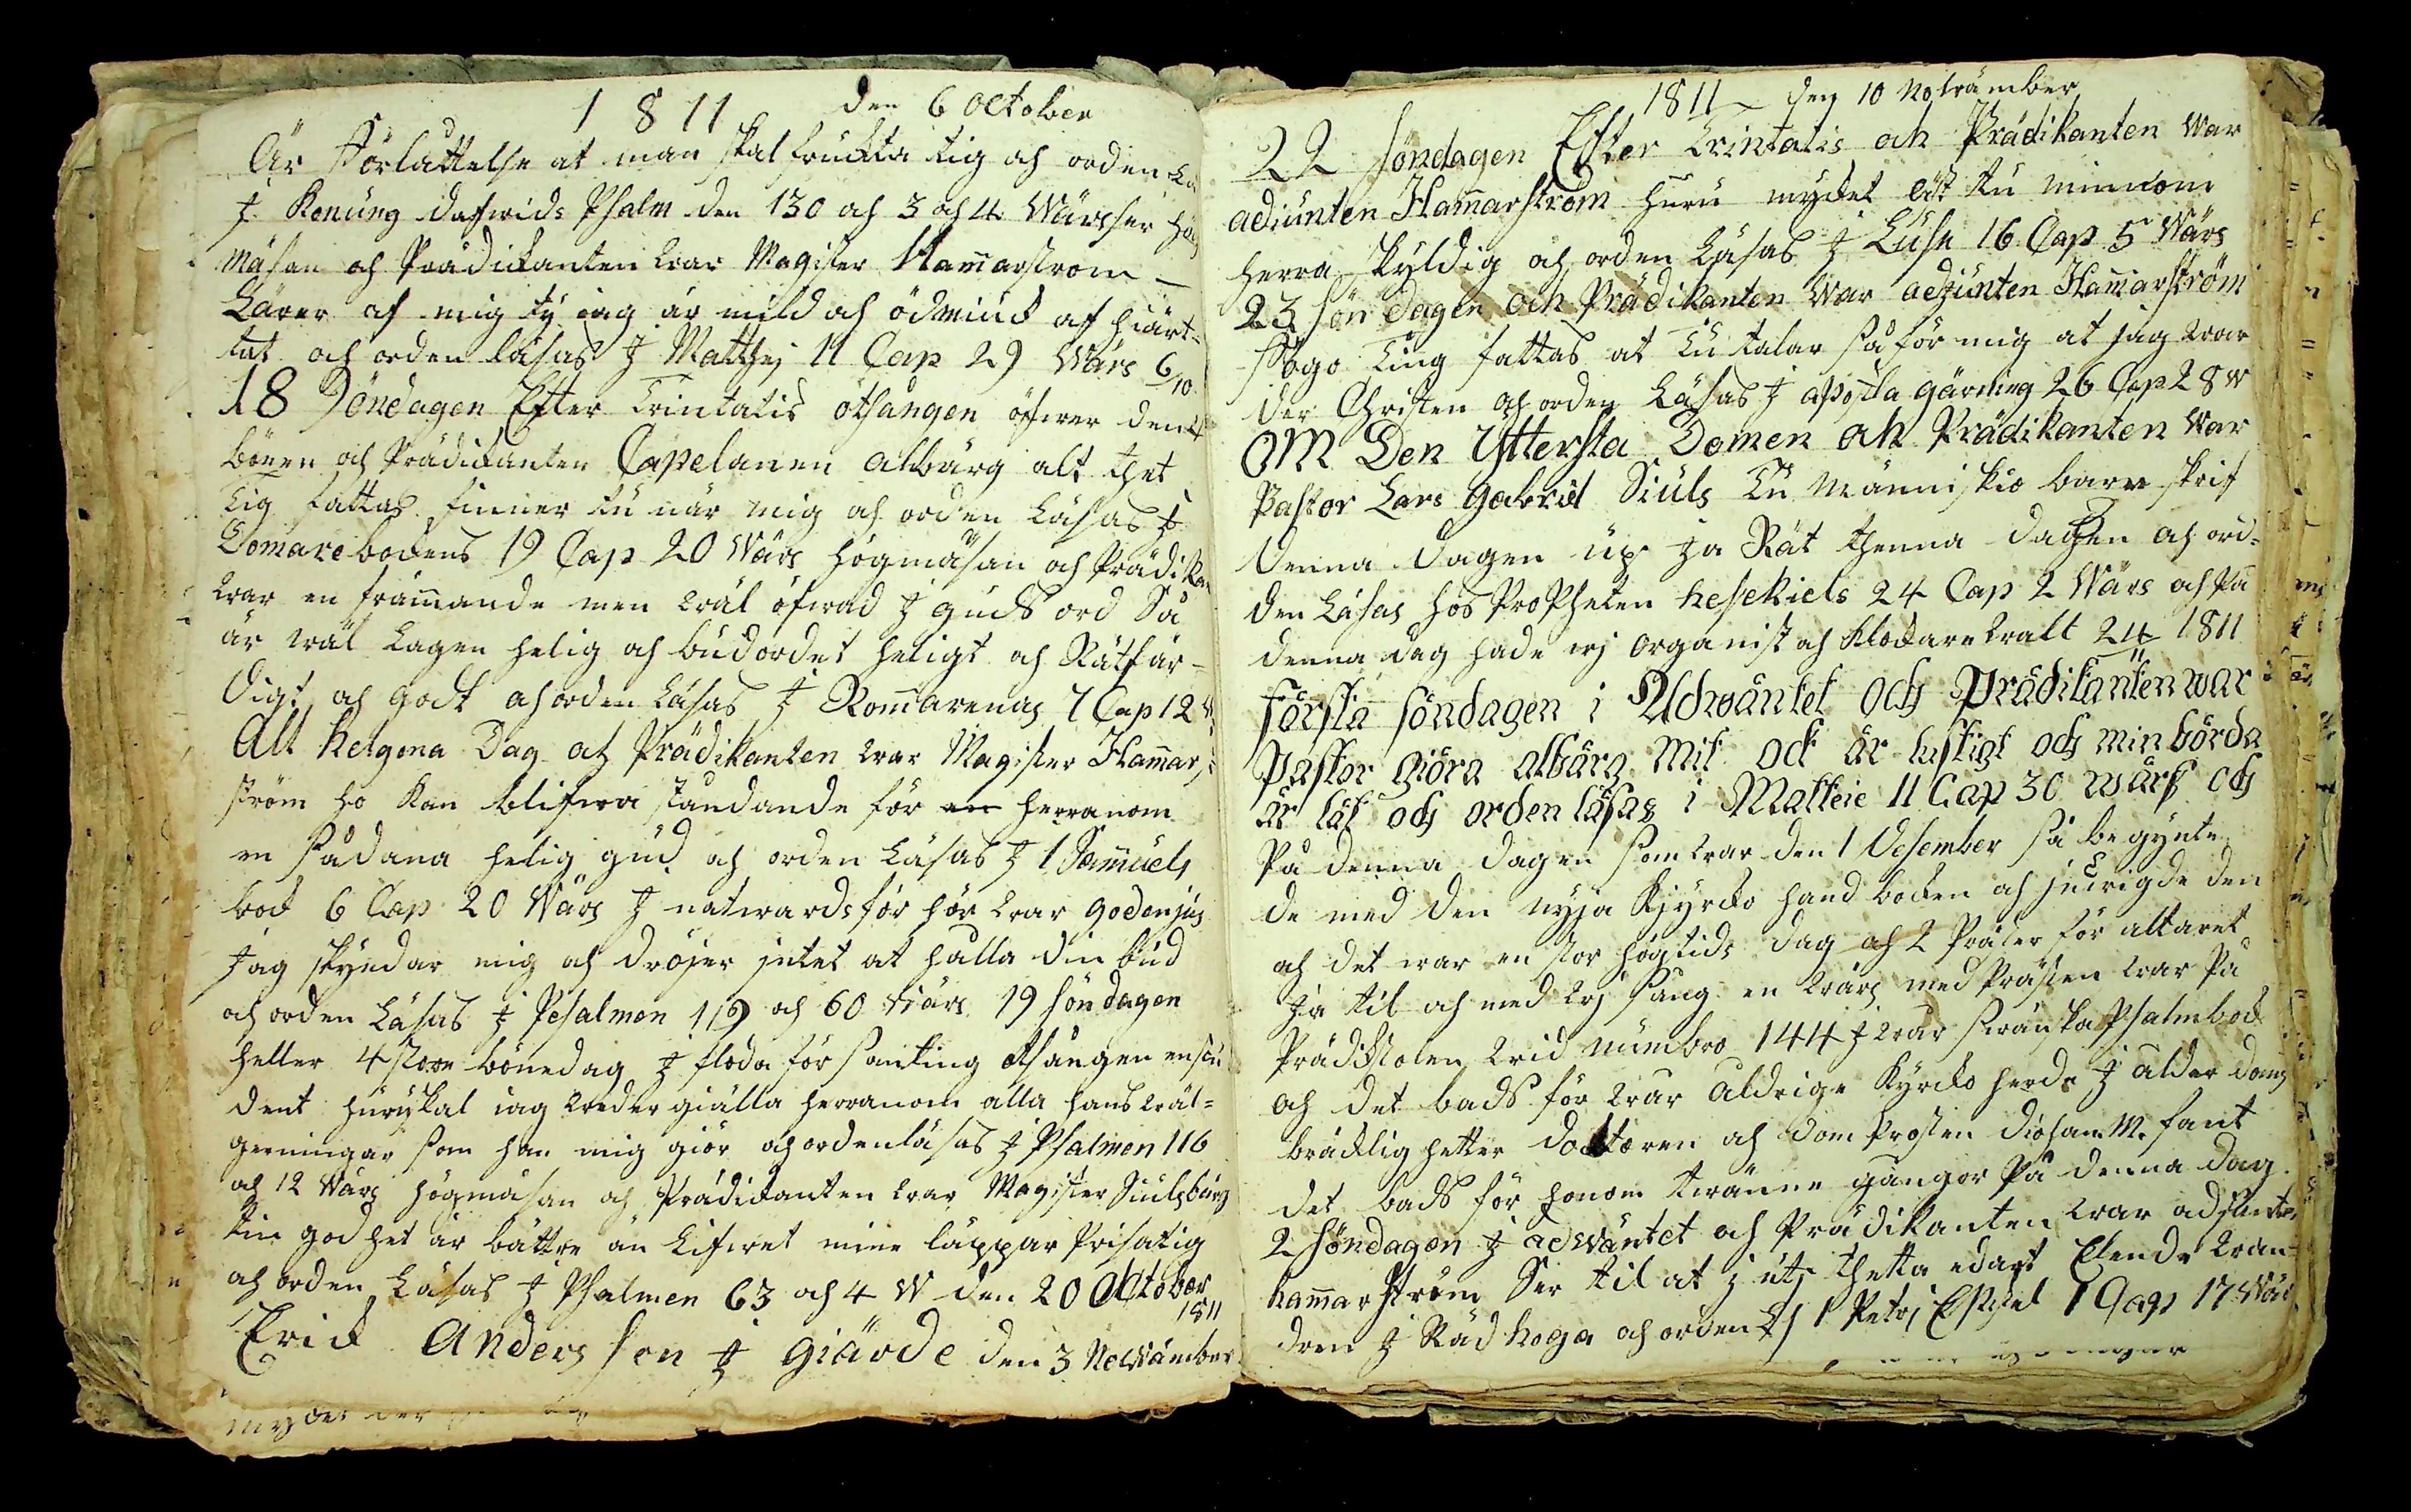 1811 den 6 October
är Förlåttelse at man skal frukta tig och orden Lä
J. Konung dafwids Psalm den 130 och 3 och 4 Wärsser hög
mäsan och Prädickanten war Magister Hamarstrom
Lärer af mig ty iag är mild och ödmiuck af hiärt-
tat och orden läsas J Matthej 11 Cap 29 Wärs 6/10
18 Söndagen Efter Trintatis otsången öfwer den 4
bönen och Prädickanten Capelanen albärg alt thet
tig fattas finner tu när mig och orden Läsas J
Domare bockens 19 Cap 20 Wärs högmäsan och Prädikan
war en främande men wäl öfwad J guds ord Så
är wäl Lagen helig och budordet heligt och Rätfär-
digt och godt och orden Läsas J Romarenas 7 Cap 12 W
Alt helgona Dag och Prädikanten war Magister Hamar-
ström ho kan blifwaståndande för herranom
en sådana helig gud och orden Läsas J 1 Samuels
bock 6 Cap 20 Wärs J natwards för hör war
Jag skyndar mig och dröjer jntet at hålla din bud
och orden Läsas J Pesalmen 119 och 60 wärs 19 Söndagen
heller 4 store bönedag J floda för samling otsången en stu
dent huru skal iag weder giälla herranom alla hans wäl-
gerningar som han mig giör och orden läsas J Psalmen 116
och 12 Wärs högmäsan och Prädickanten war Magister Siulsbärg
tin godhet är bättre än Lifwet mine läppar Prisa tig
och orden Läsas J Psalmen 63 och 4 W den 20 October
1811
Erick Andersson J giärde den 3 Newämber
1811 den 10 Nowämber
22 söndagen Efter Trintatis och Prädikanten War
adiunten Hamarström huru mycket äst tu minom
herra skyldig och orden Läsas J Luse 16 Cap 5 Wärs
23 söndagen och Prädikanten War adjunten Hamarström
Fögo Ting fattas at tu talar så för mig at jag war
der Christen och orden Läsas J apostla gärning 26 Cap 28 W
OM Den Yttersta Domen och Prädikanten War
Pastor Lars Gabriel Siuls Tu Männi skio barn skrif
denna dagen up Ja Rät thenna dagen och ord-
den Läsas hos Propheten hesekiels 24 Cap 2 Wärs och På
denna dag hade wj organist och Klockare walt 24/11 1811
första söndagen i Adwäntet och Prädikanten war
pastor giöra albärg Mit ock är lustigt och min börda
är lät och orden läsas i Matteie 11 Cap 30 wärs och
På denna dagen som war den 1 Desember så be gynte
de med den nyja Kjyrcko hand bocken och den
och det war en stor högtids dag och 2 Präster för altaret
Ja til och med wj sång en wärs med Prästen war På
Prädikstolen wid numbro 144 J wår swänska Psalmbock
och det bads för wår åldrige Kyrcko herde J ålder doms
bräcklig hetter Docktoren och dom Prosten M. fant
det bads för honom twänne gånger På denna dag
2 söndagen J adwäntet och Prädikanten war adjunten
hamarström Ser til at j uti thetta edart Elende wan-
dren J Rädhoga och orden J 1 Petrj Epistel 1 Cap 17 Wärs